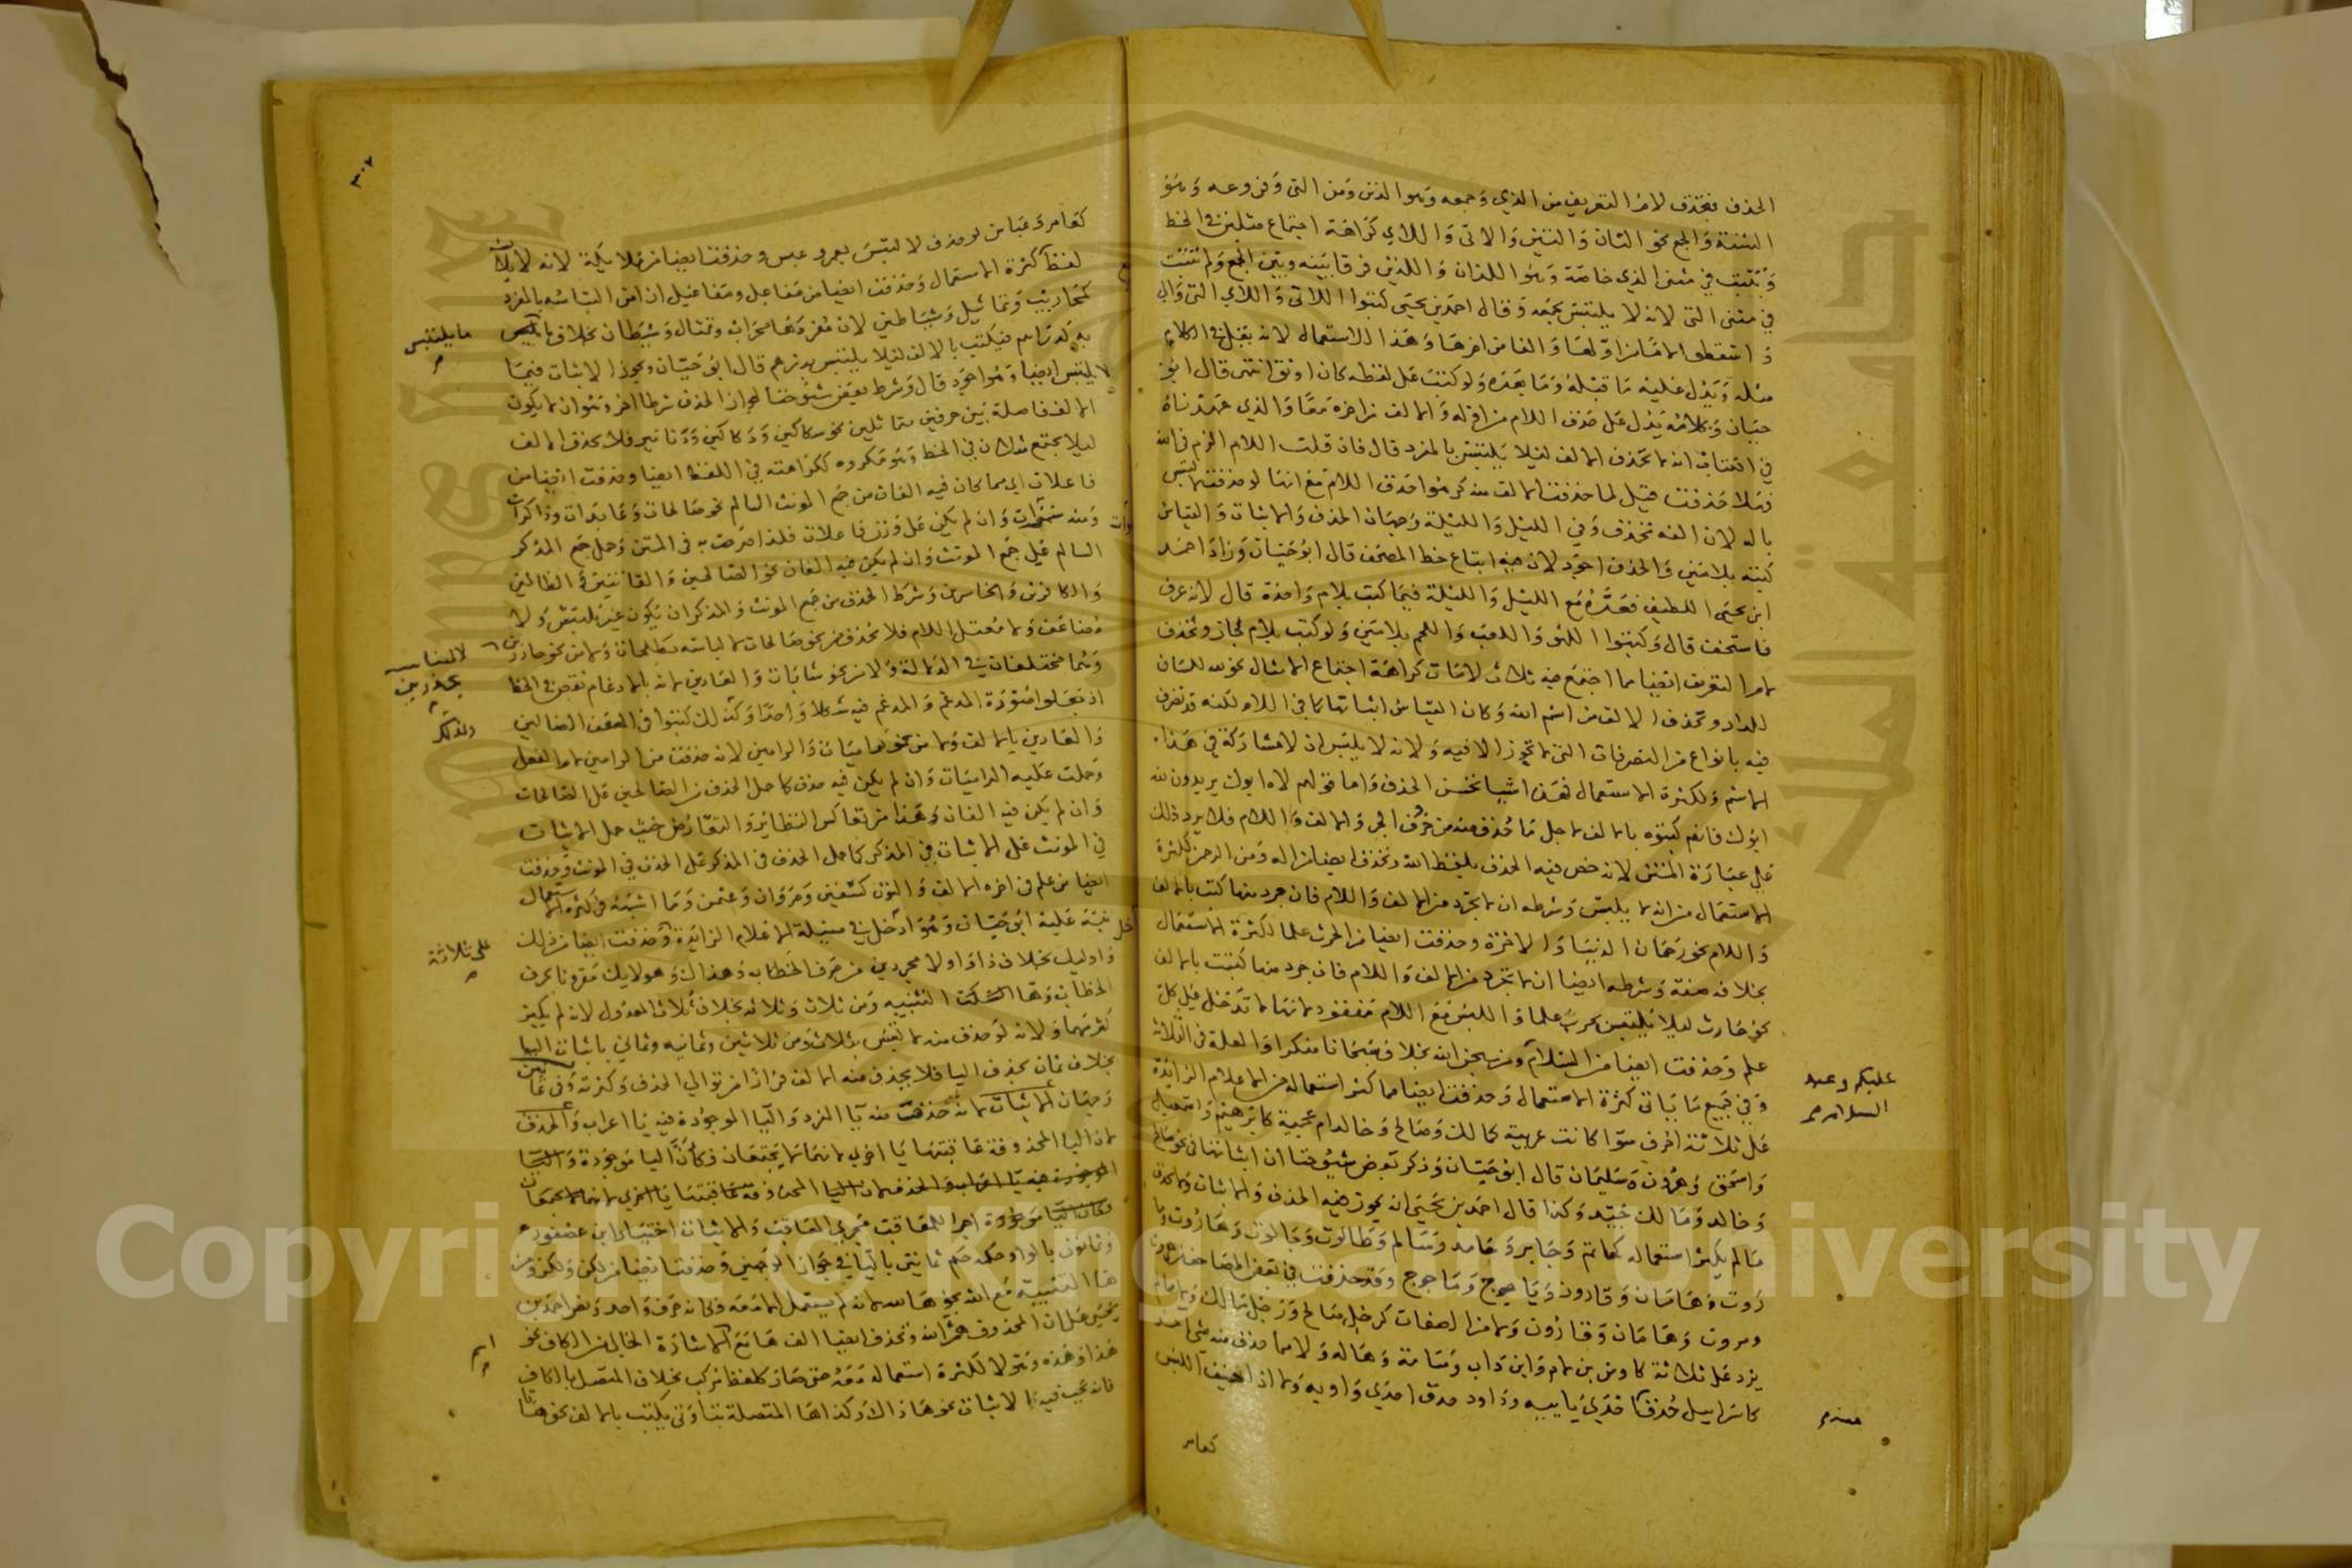 الحذف فتحذف لام التعريف من الذي وجمعه وهو الذين ومن التي وفروعه وهو
التثنية والجمع نحو التان والتين والاتي واللاي كراهة اجتماع مثلين في الخط
وتثبت في مثنى الذي خاصة وهو اللذان واللذين فرقا بينه وبين الجمع ولم تثبت
في مثنى التي لانه لا يلتبس بجمعه وقال احمد بن يحيى كتبوا اللاتي واللاي التي
واسقطوا لاما من اولها والفا من اخرها وهذا الاستعمال لانه يقل في الكلام
مثله ويدل عليه ما قبله وما بعده ولو كتبت على لفظه كان اوثق انتهى قال ابو
حيان وكلامه يدل على حذف اللام من اوله والالف من اخره معا والذي عهدناه
في الكتاب انه لا تحذف الالف ليلا يلتبس بالمفرد قال فان قلت اللام الزم في الله
فهلا حذفت قيل لما حذفت الالف منه كرهوا حذف اللام مع انها لو حذفت لالتبس
باله لان الفه تحذف وفي الليل والليلة وجهان الحذف والاثبات والقياس
كتبه بلامين والحذف اجود لان فيه اتباع خط المصحف قال ابو حيان وزاد احمد
ابن يحيى اللطيف فعده مع الليل والليلة فيما كتب بلام واحدة قال لانه عرف
فاستخف قال وكتبوا اللهو واللعب واللحم بلامين ولو كتب بلام لجاز وتحذف
لام التعريف ايضا مما اجتمع فيه ثلاث لامات كراهة اجتماع الامثال نحو لله للسان
للدار وتحذف الالف من اسم الله وكان القياس اثباتها كما في اللام لكنه تصرف
فيه بانواع من التصرفات التي لا تجوز الا فيه ولانه لا يلتبس ان لا مشاركة في هذا
الاسم ولكثرة الاستعمال فهذه اشيا تحسن الحذف واما قولهم لاه ابوك يريدون لله
ابوك فانهم كتبوه بالالف لاجل ما حذف منه من حرف الجر والالف واللام فلا يرد ذلك
على عبارة المتن لانه خص فيه الحذف بلفظ الله وتحذف ايضا من اله ومن الرحمن لكثرة
الاستعمال من انه لا يلتبس وشرطه ان لا تجرد من الالف واللام فان جرد منها كتب بالالف
واللام نحو رحمان الدنيا والاخرة وحذفت ايضا من الحرث علما لكثرة الاستعمال
بخلافه صفة وشرطه ايضا ان لا تجرد من الالف واللام فان جرد منها كتبت بالالف
نحو حارث ليلا يلتبس بحرب علما واللبس مع اللام مفقود لانها لا تدخل على كل
علم وحذفت ايضا من السلام ومن سبحن الله بخلاف سبحانا منكرا والعلة في الثلاثة
عليكم وعبد
السلام صح
وفي جميع ما ياتي كثرة الاستعمال وحذفت ايضا مما كثر استعماله من الاعلام الزايدة
على ثلاثة احرف سوا كانت عربية كمالك وصالح وخالد ام عجمية كابرهيم واسمعيل
واسحق وهرون وسليمان قال ابو حيان وذكر بعض شيوخنا ان اثباتها في نحو صالح
وخالد ومالك جيد وكذا قال احمد بن يحيى انه يجوز فيه الحذف والاثبات
ما لم يكثر استعماله كحاتم وجابر وحامد وسالم وطالوت وجالوت وهاروت وما
روت وهامان وقارون وياجوج وماجوج وقد حذفت في بعض المصاحف
ومروت وهامان وقارون ولا من الصفات كرجل صالح ورجل مالك
يزد على ثلاثة كاوس بن لام وابن داب وسامة وهاله ولا مما حذف منه شي
كاسرايل حذفت احدى يايـيه وداود حذف احدى واويه ولا اذا خيف اللبس
كعامر
٣٠٢
كعامر وعباس لو حذف لالتبس بعمرو عبس وحذفت ايضا من
لفظا كثرة الاستعمال وحذفت ايضا من مفاعل ومفاعيل ان امن التباسه بالمفرد
كمحاريب وتماثيل وشياطين لان مفردها محراب وتمثال وشيطان بخلاف
ما يلتبس
به كدراهم فيكتب بالالف ليلا يلتبس بدرهم قال ابو حيان ويجوز الاثبات فيما
لا يلتبس ايضا وهو اجود قال وشرط بعض شيوخنا لجواز الحذف شرطا اخر وهو ان لا يكون
الالف فاصلة بين حرفين متماثلين نحو سكاكين ودكاكين ودنانير فلا تحذف الالف
ليلا يجتمع مثلان في الخط وهو مكروه ككراهته في اللفظ ايضا وحذفت ايضا من
فاعلات اي مما كان فيه الفان من جمع المونث السالم نحو صالحات وعابدات وذاكرات
ومنه سموات وان لم يكن على وزن فاعلات فلذا صرحت به في المتن وحمل جمع المذكر
السالم على جمع المونث وان لم يكن فيه الفان نحو الصالحين والقانتين والظالمين
والكافرين والخاسرين وشرط الحذف من جمع المونث والمذكر ان يكون غير ملتبس ولا
مضاعف ولا معتل اللام فلا تحذف من نحو صالحات لالباسه بطلحات ولا من نحو حاذرين
لالتباسه
بحذرين
وهما مختلفان في الدلالة ولا من نحو شابات والعادين لانه بالادغام نقص في الخط
اذ جعلوا صورة المدغم والمدغم فيه شكلا واحدا وكذلك كتبوا في المصحف الضالين
والعادين بالالف ولا من نحو راميات والرامين لانه حذفت من الرامين لام الفعل
وحملت عليه الراميات وان لم يكن فيه حذف كما حمل الحذف من الصالحين على الصالحات
وان لم يكن فيه الفان وهذا من تعاكس النظاير والتقارض حيث حمل الاثبات
في المونث على الاثبات في المذكر كما حمل الحذف في المذكر على الحذف في المونث وحذفت
ايضا من علم في اخره الالف والنون كسفين ومروان وعثمن وما اشبهه في كثرة الاستعمال
نبه عليه ابو حيان وهو داخل في مسيلة الاعلام الزايدة
على ثلاثة
وحذفت ايضا من ذلك
واوليك بخلاف ذا واولا مجردين من حرف الخطاب وهذاك وهولايك مقرونا بحرف
الخطاب وها التنبيه ومن ثلاث وثلاثه بخلاف ثلاث المعدول لانه لم يكثر
كثرتهما ولانه لو حذف منه لالتبس بثلاث ومن ثلاثين وثمانيه وثماني باثبات اليا
بخلاف ثمان بحذف اليا فلا يحذف منه الالف فرارا من توالي الحذف وكثرته وفي ثمانين
وجهان الاثبات لانه حذفت منه يا المفرد واليا الموجودة فيه يا اعراب والحذف
لان اليا المحذوفة عاقبتها يا اخرى لانهما لا يجتمعان فكان اليا موجودة
وكان اليا موجودة اجرا للمعاقب مجرى المعاقب والاثبات اختيار ابن عصفور
وثمانون بالواو حكمه حكم ثمانين باليا في جواز الوجهين وحذفت ايضا من لكن ولكن ومن
ها التنبيه مع الله نحو ها لله
يحيى على ان المحذوف همزة الله وتحذف ايضا الف ها مع الاشارة الخالي من الكاف نحو
هذا وهذه وهولا لكثرة استعماله معه حتى صار كلفظ مركب بخلاف المتصل بالكاف
فانه يجب فيه الاثبات نحو هاذاك وكذا ها المتصلة بتا وتي يكتب بالالف نحو هاتا